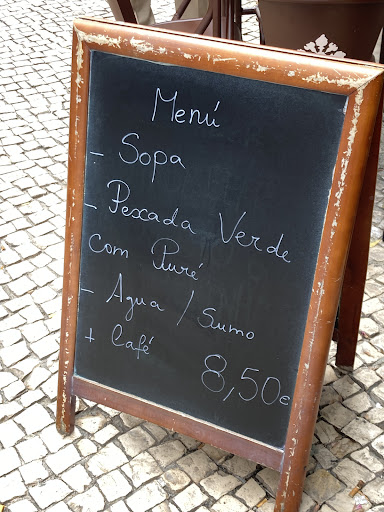 Menú
- Sopa
- Pescada Verde
com Puré
- Agua / Sumo
+ Café
8,50€